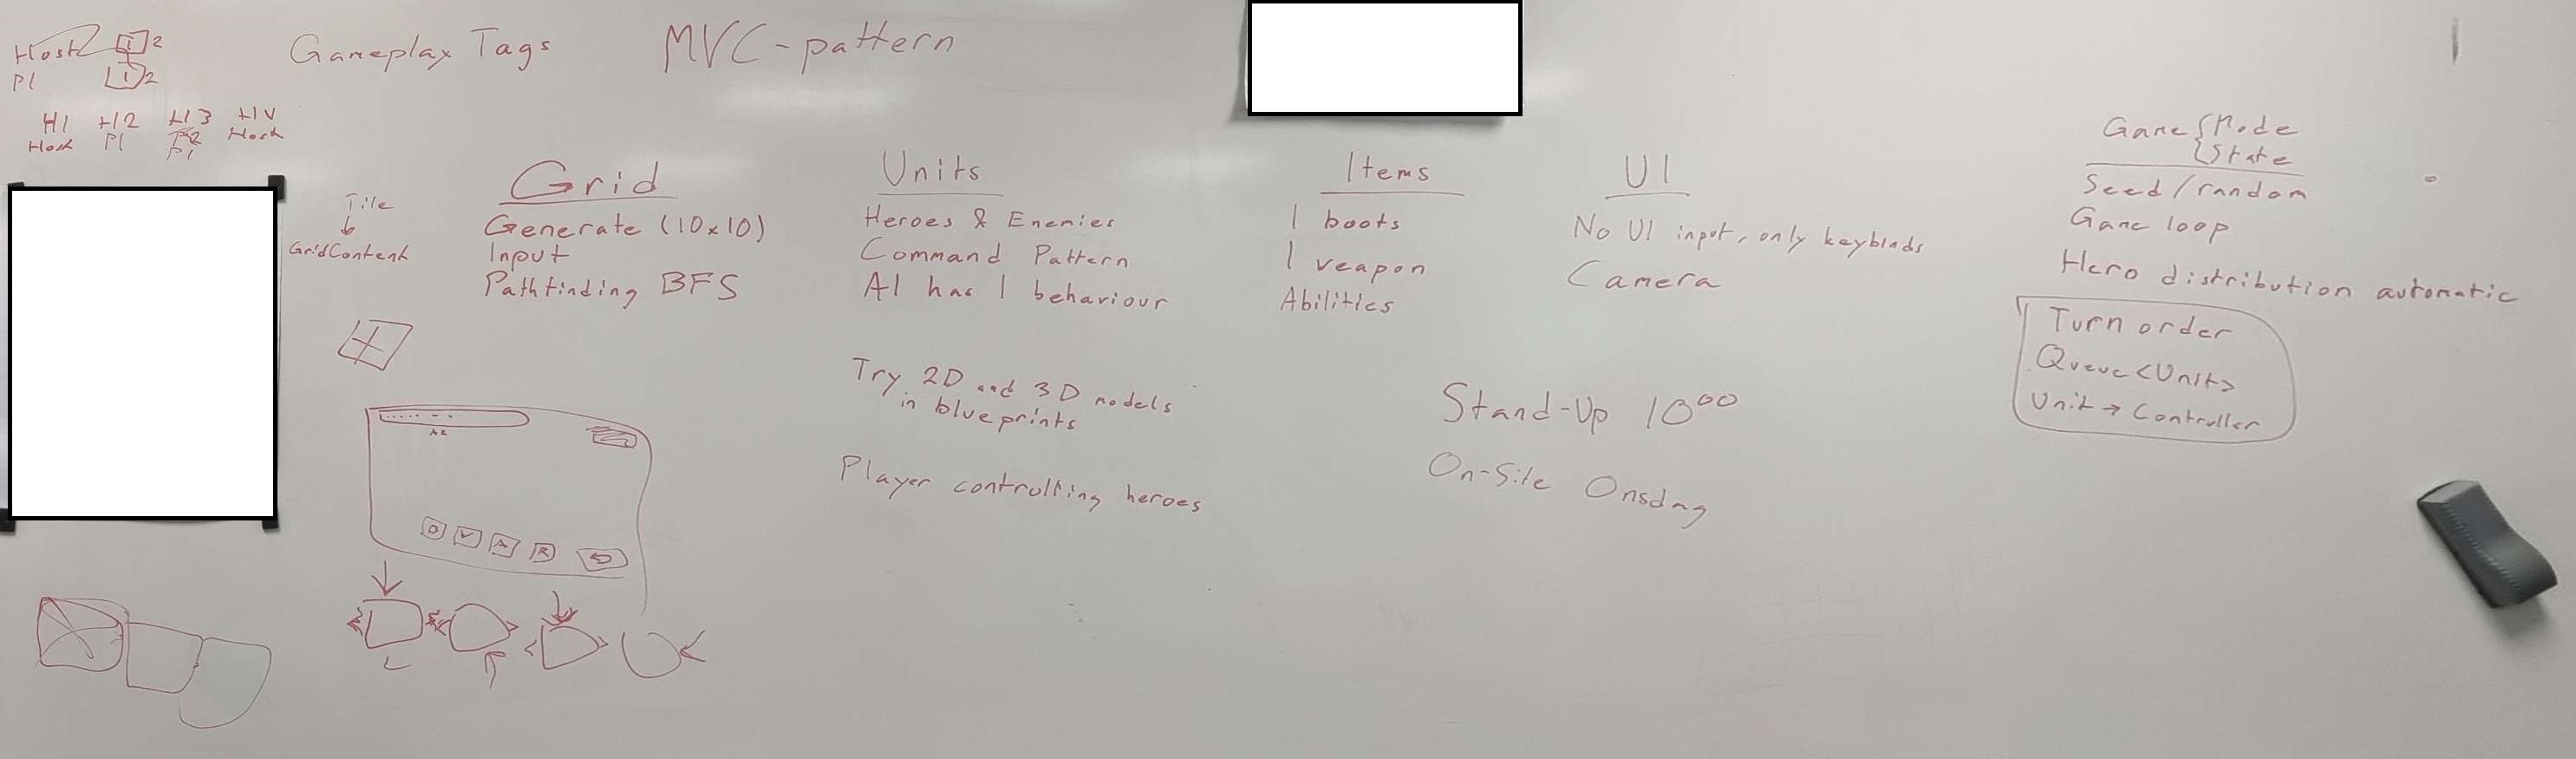 Host
P1
1 2
1 2
H1 H2 H3 HV
Host P1 P1 Host
Gameplay Tags
MVC-pattern
Tile
GridContent
Grid
Generate (10x10)
Input
Pathfinding BFS
Units
Heroes & Enemies
Command Pattern
AI has 1 behaviour
Try 2D and 3D models
in blueprints
Player controlling heroes
Items
1 boots
1 weapon
Abilities
UI
No UI input, only keybinds
Camera
Stand-Up 10⁰⁰
On-Site Onsdag
Game { Mode
State
Seed/random
Game loop
Hero distribution automatic
Turn order
Queue<Unit>
Unit → Controller